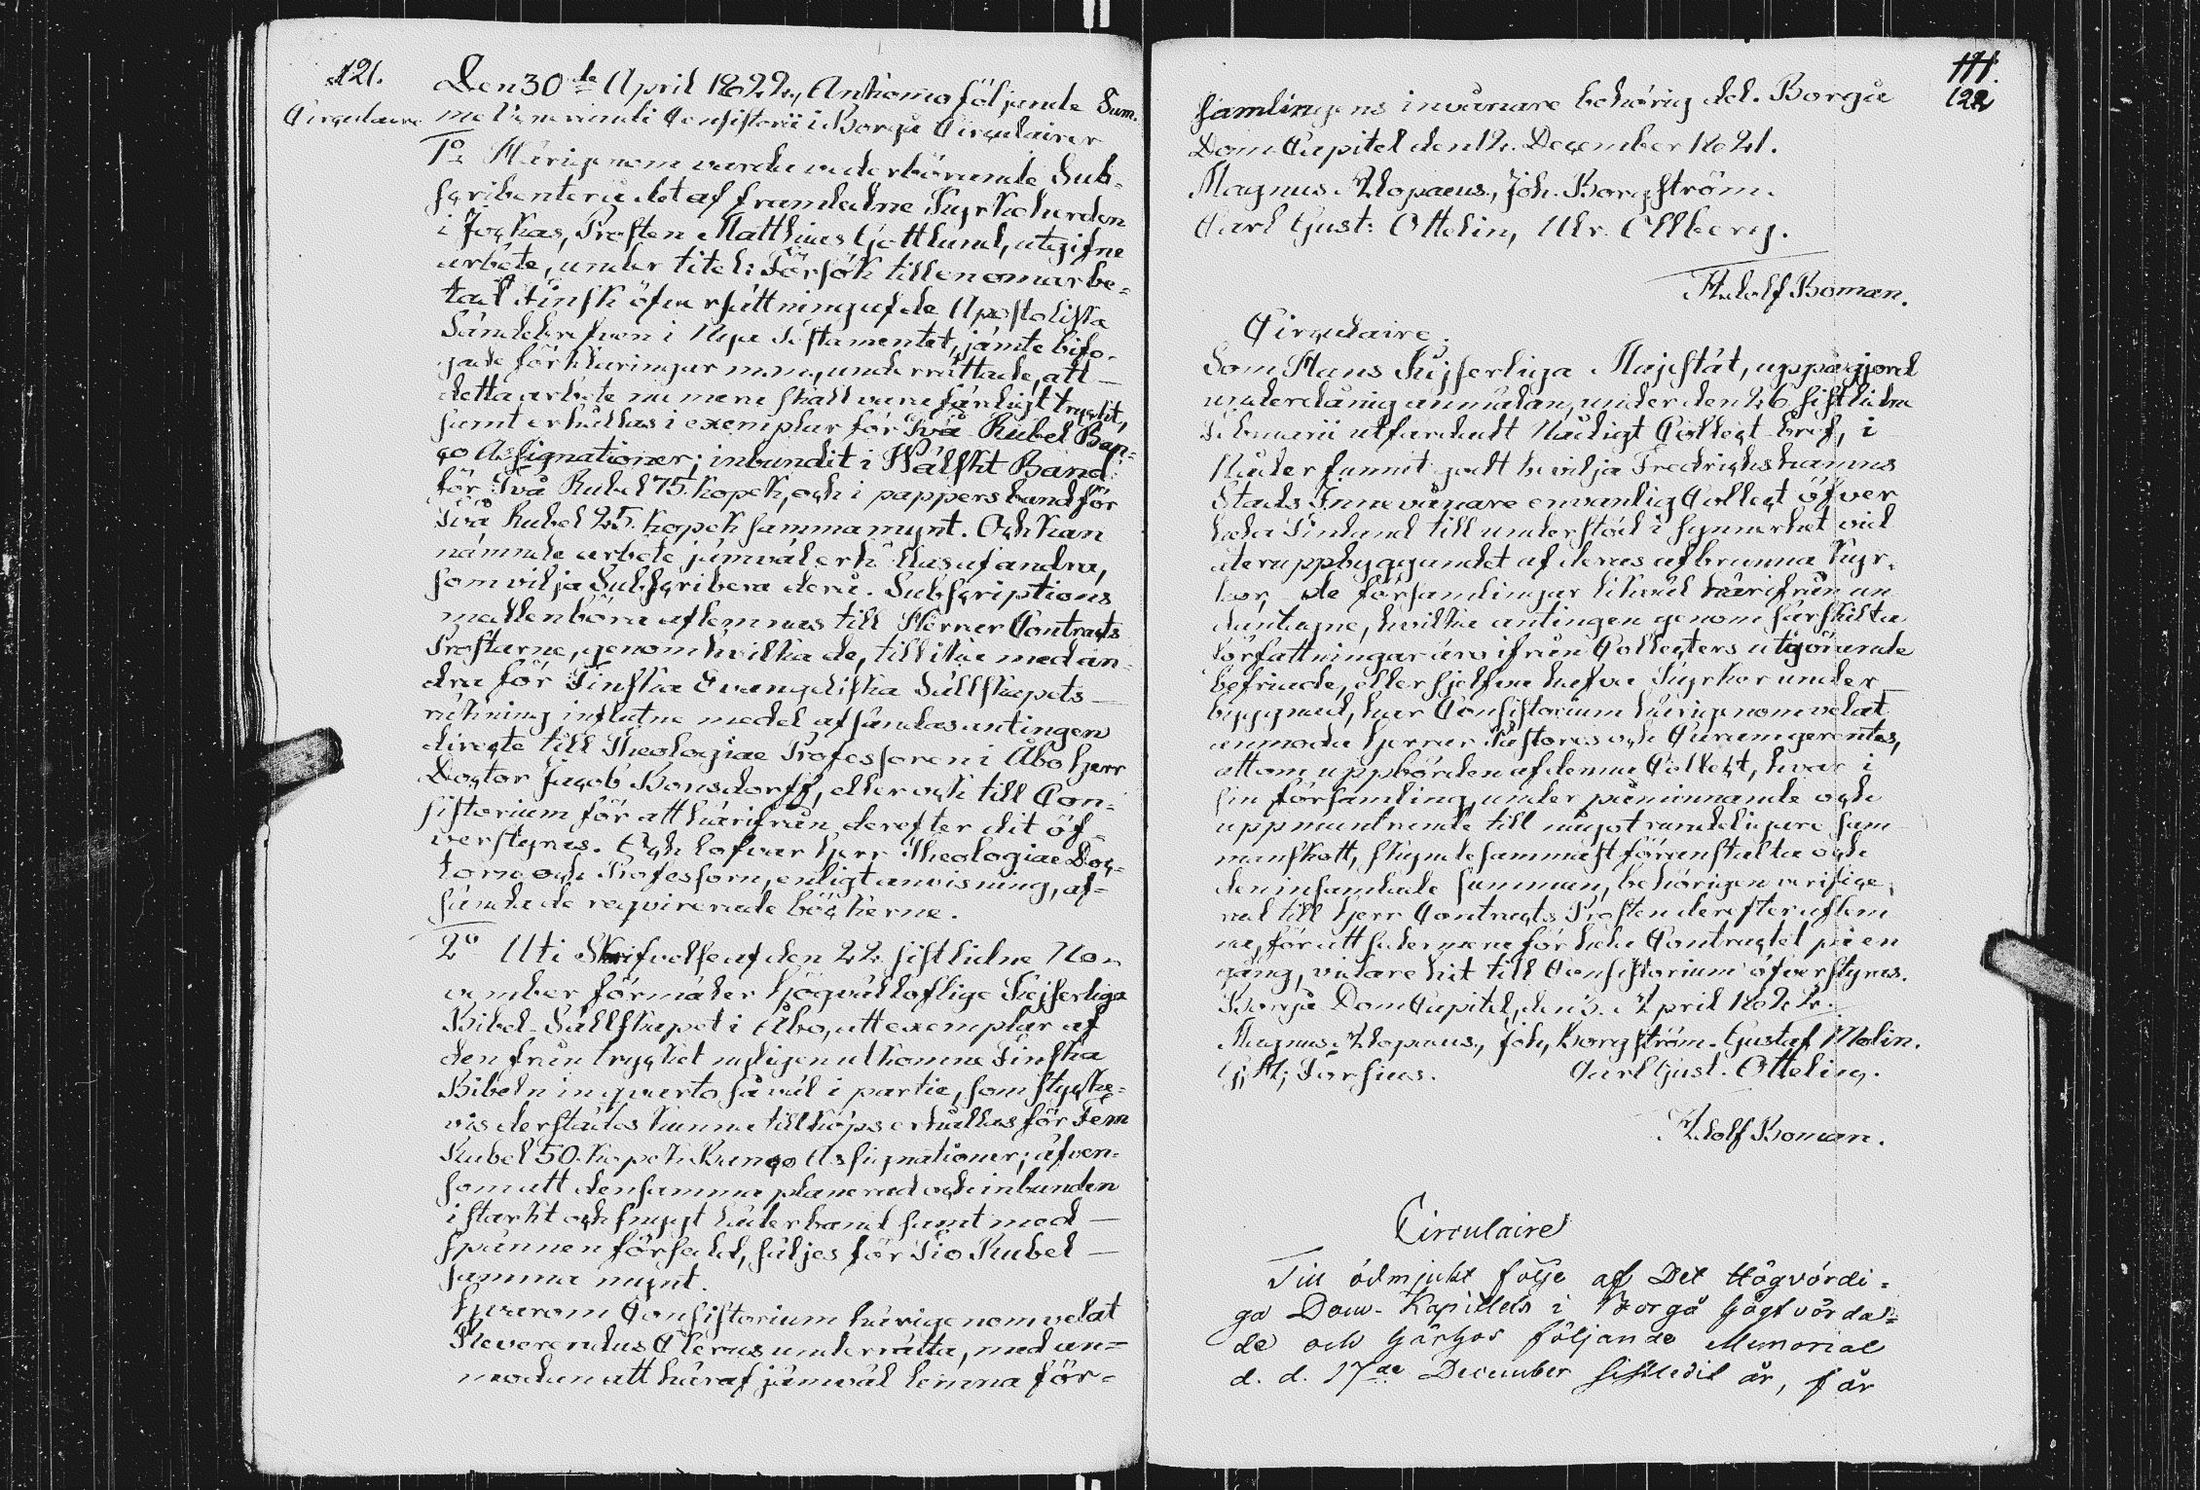 121.
Circulaire
Den 30de April 1822, Ankomo följande Sum.
me Venerandi Consistorii i Borgå Circulairer
1o Härigenom varda vederbörande Sub-
scribenter å det af framledne Kyrkoherden
i Jockas, Prosten Matthias Gottlund, utgifne
arbete, under titel: Försök till en omarbe-
tad Finsk öfversättning af de Apostoliska
Sändebrefven i Nya Testamentet, jämte bifo-
gade förklaringar m.m., underrättade, att
detta arbete nu mera skall vara färdigt tryckt,
samt erhållas i exemplar för Två Rubel Ban-
co Assignationer; inbundit i Wälskt Band
för Två Rubel 75. kopek, och i pappersband för
Två Rubel 25. kopek samma mynt. Och kan
nämnde arbete jämväl erhållas af andra,
som vilja Subscribera derå. Subscriptions
medlen böra aflemnas till Herrar Contracts
Prostarne, genom hvilka de, tillika med an-
dra för Finska Evangeliska Sällskapets
räkning influtne medel afsändas antingen
directe till Theologiae Professoren i Åbo Herr
Doctor Jacob Bonsdorff, eller och till Con-
sistorium för att härifrån derefter dit öf-
verstyras. Och lofvar Herr Theologiae Doc-
torn och Professorn, enligt anvisning, af-
sända de reqvirerade böckerne.
2o Uti Skrifvelse af den 22 sistlidne No-
vember förmäler Högvälloflige Kejserliga
Bibel-Sällskapet i Åbo, att exemplar af
den från trycket nyligen utkomne Finska
Bibeln in quarto så väl i partie, som stycke-
vis derstädes kunna till köps erhållas för Fem
Rubel 50. kopek Banco Assignationer; äfven-
som att densamma planerad och inbunden
i starkt och snyggt läderband samt med
spännen försedd, säljes för Tio Rubel
samma mynt.
Hvarom Consistorium härigenom velat
Reverendus Clerus underrätta, med an-
modan att häraf jämväl lemna för-
111.
122
samlingens invånare behörig del. Borgå
Dom Capitel den 12. December 1821.
Magnus Alopaeus, Joh. Borgström.
Carl Gust: Ottelin, Ulr. Ellberg.
Adolf Boman.
Circulaire,
Som Hans Kejserliga Majestät, uppå gjord
underdånig anmälan, under den 26 sistlidne
Februarii utfärdadt Nådigt Collect-bref, i
Nåder funnit godt bevilja Fredrikshamns
Stads Innevånare en vanlig Collect öfver
hela Finland till understöd i synnerhet vid
återuppbyggandet af deras afbrunna Kyr-
kor, de församlingar likväl härifrån un-
dantagne, hvilka antingen genom särskilta
Författningar äro ifrån Collecters utgörande
befriade, eller sjelfva hafva Kyrkor under
byggnad, har Consistorium härigenom velat
anmoda herrar Pastores och Curam gerentes,
att om uppbörden af denna Collect, hvar i
sin församling, under påminnande och
uppmuntrande till något rundeligare sam-
manskott, skyndesammast föranstalta och
den insamlade summan, behörigen verifice-
rad till herr Contracts Prosten derefter aflem-
na, för att sedermera för hela Contractet på en
gång, vidare hit till Consistorium öfverstyras.
Borgå Dom Capitel, den 3. April 1822.
Magnus Alopaeus, Joh. Borgström. Gustaf Molin.
G. A. Forsius. Carl Gust. Ottelin.
Adolf Boman.
Circulaire
Till ödmjukt följe af Det Högvördi-
ga Dom-Kapitlets i Borgå högtvörda-
de och hårhos följande Memorial
d. d. 17de December sistledit år, får